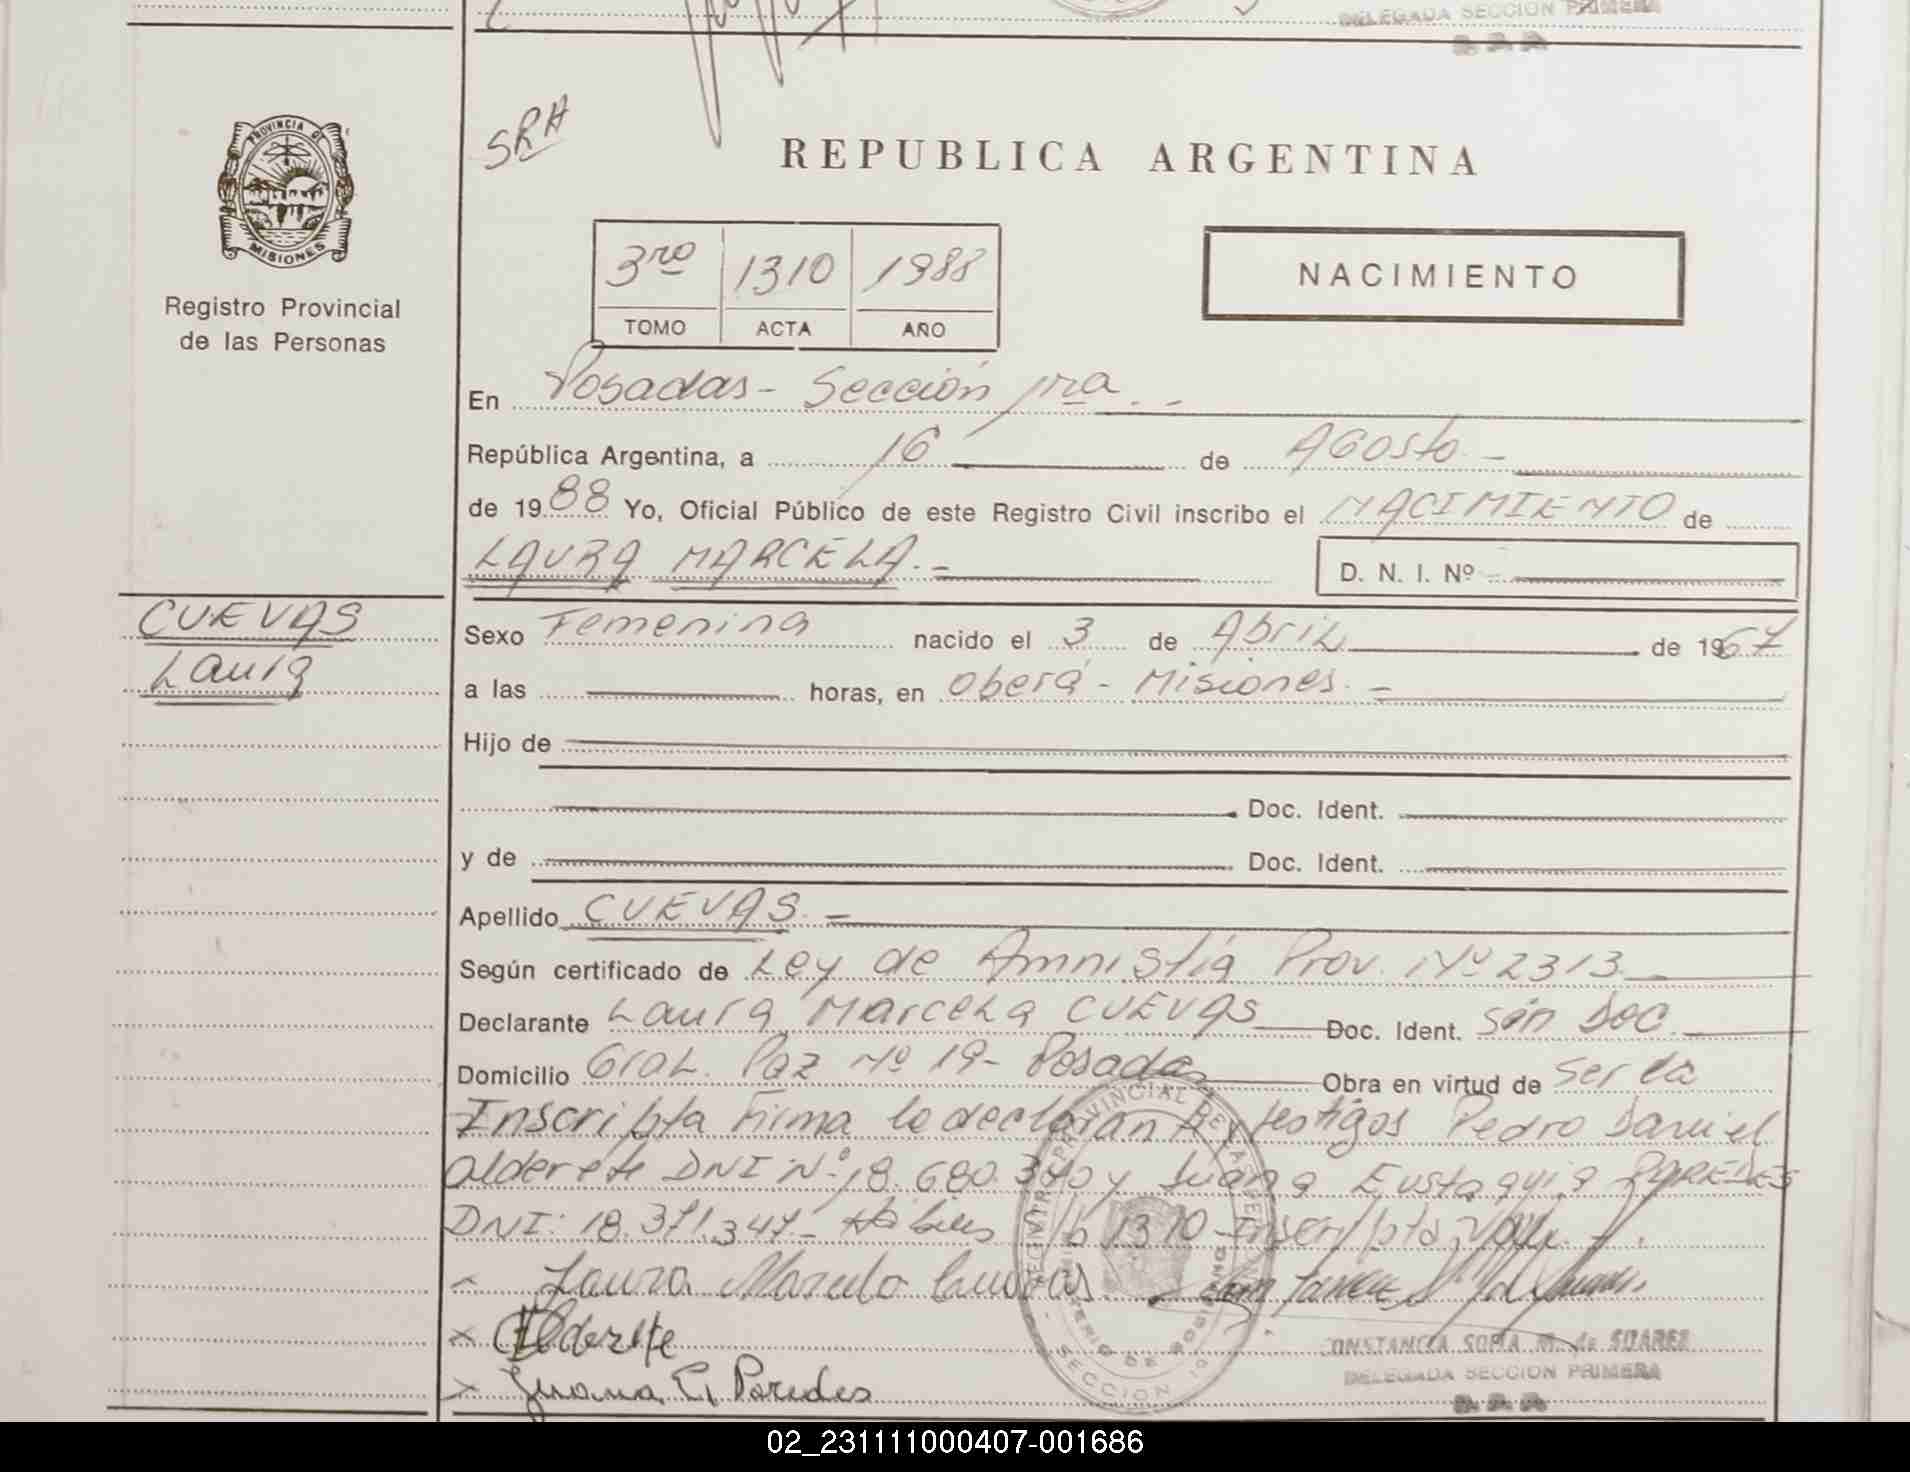 DELEGADA SECCION PRIMERA
SRH
PROVINCIA DE
MISIONES
REPUBLICA ARGENTINA
3ro 1310 1988
TOMO ACTA AÑO
NACIMIENTO
Registro Provincial
de las Personas
En Posadas - Sección 1ra. -
República Argentina, a 16 de Agosto. -
de 1988 Yo, Oficial Público de este Registro Civil inscribo el NACIMIENTO de
LAURA MARCELA. - D. N. I. Nº
CUEVAS
Laura
Sexo Femenina nacido el 3 de Abril de 1967
a las horas, en Oberá - Misiones. -
Hijo de
Doc. Ident.
y de Doc. Ident.
Apellido CUEVAS. -
Según certificado de Ley de Amnistía Prov. Nº 2313
Declarante Laura Marcela CUEVAS Doc. Ident. Sin Doc.
Domicilio Gral. Paz Nº 19 - Posadas Obra en virtud de ser la
Inscripta Firma lo declaran testigos Pedro Daniel
Alderete DNI Nº 18.680.340 y Juana Eustaquia PAREDES
DNI: 18.371.347. - 1310 Inscripta Vale. -
Laura Marcela Cuevas
x Alderete
x Juana E. Paredes
REGISTRO PROVINCIAL DE LAS PERSONAS
MINISTERIO DE GOBIERNO
SECCION 1ª
CONSTANCIA SOFIA M. de SUAREZ
DELEGADA SECCION PRIMERA
02_231111000407-001686